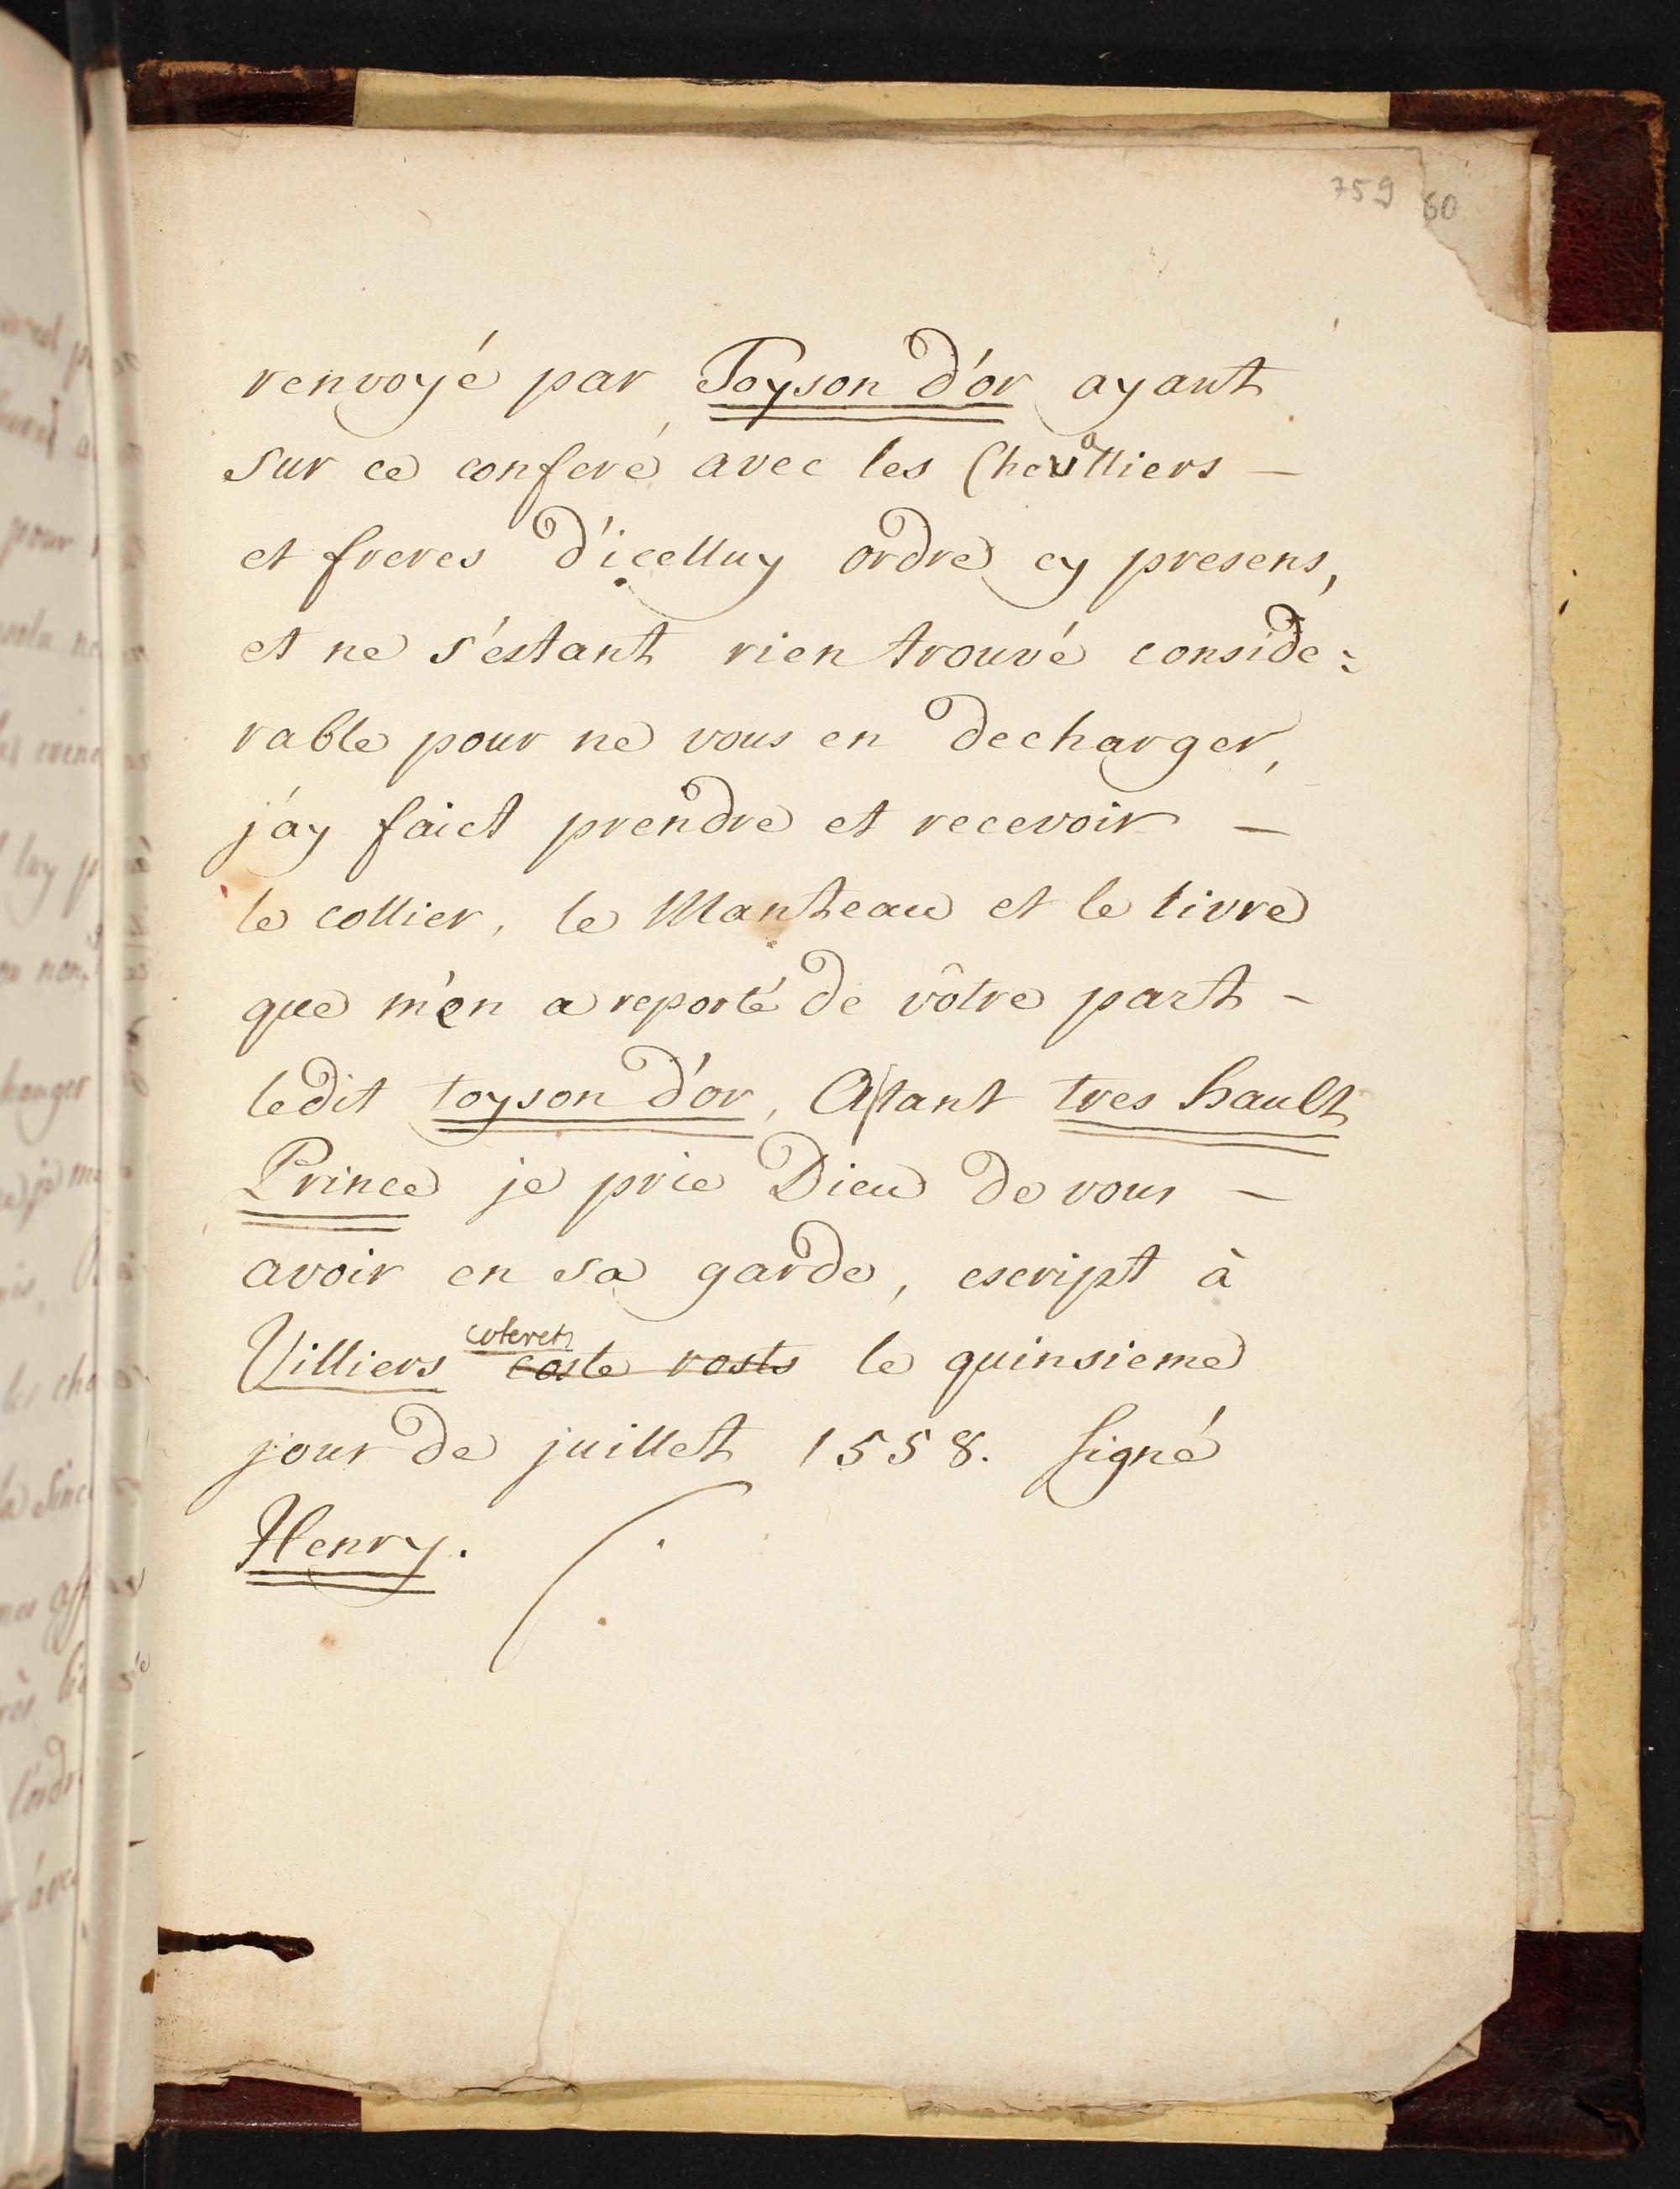 759 60
renvoyé par Toyson d'or ayant
sur ce conferé avec les Chevalliers —
et freres d'icelluy ordre cy presens,
et ne s'estant rien trouvé conside:
rable pour ne vous en decharger,
j'ay faict prendre et recevoir —
le collier, le Manteau et le livre
que m'en a reporté de vôtre part —
ledit toyson d'or, A tant tres hault
Prince je prie Dieu de vous —
avoir en sa garde, escript à
coterets
Villiers coste rosts le quinsieme
jour de juillet 1558. signé
Henry.